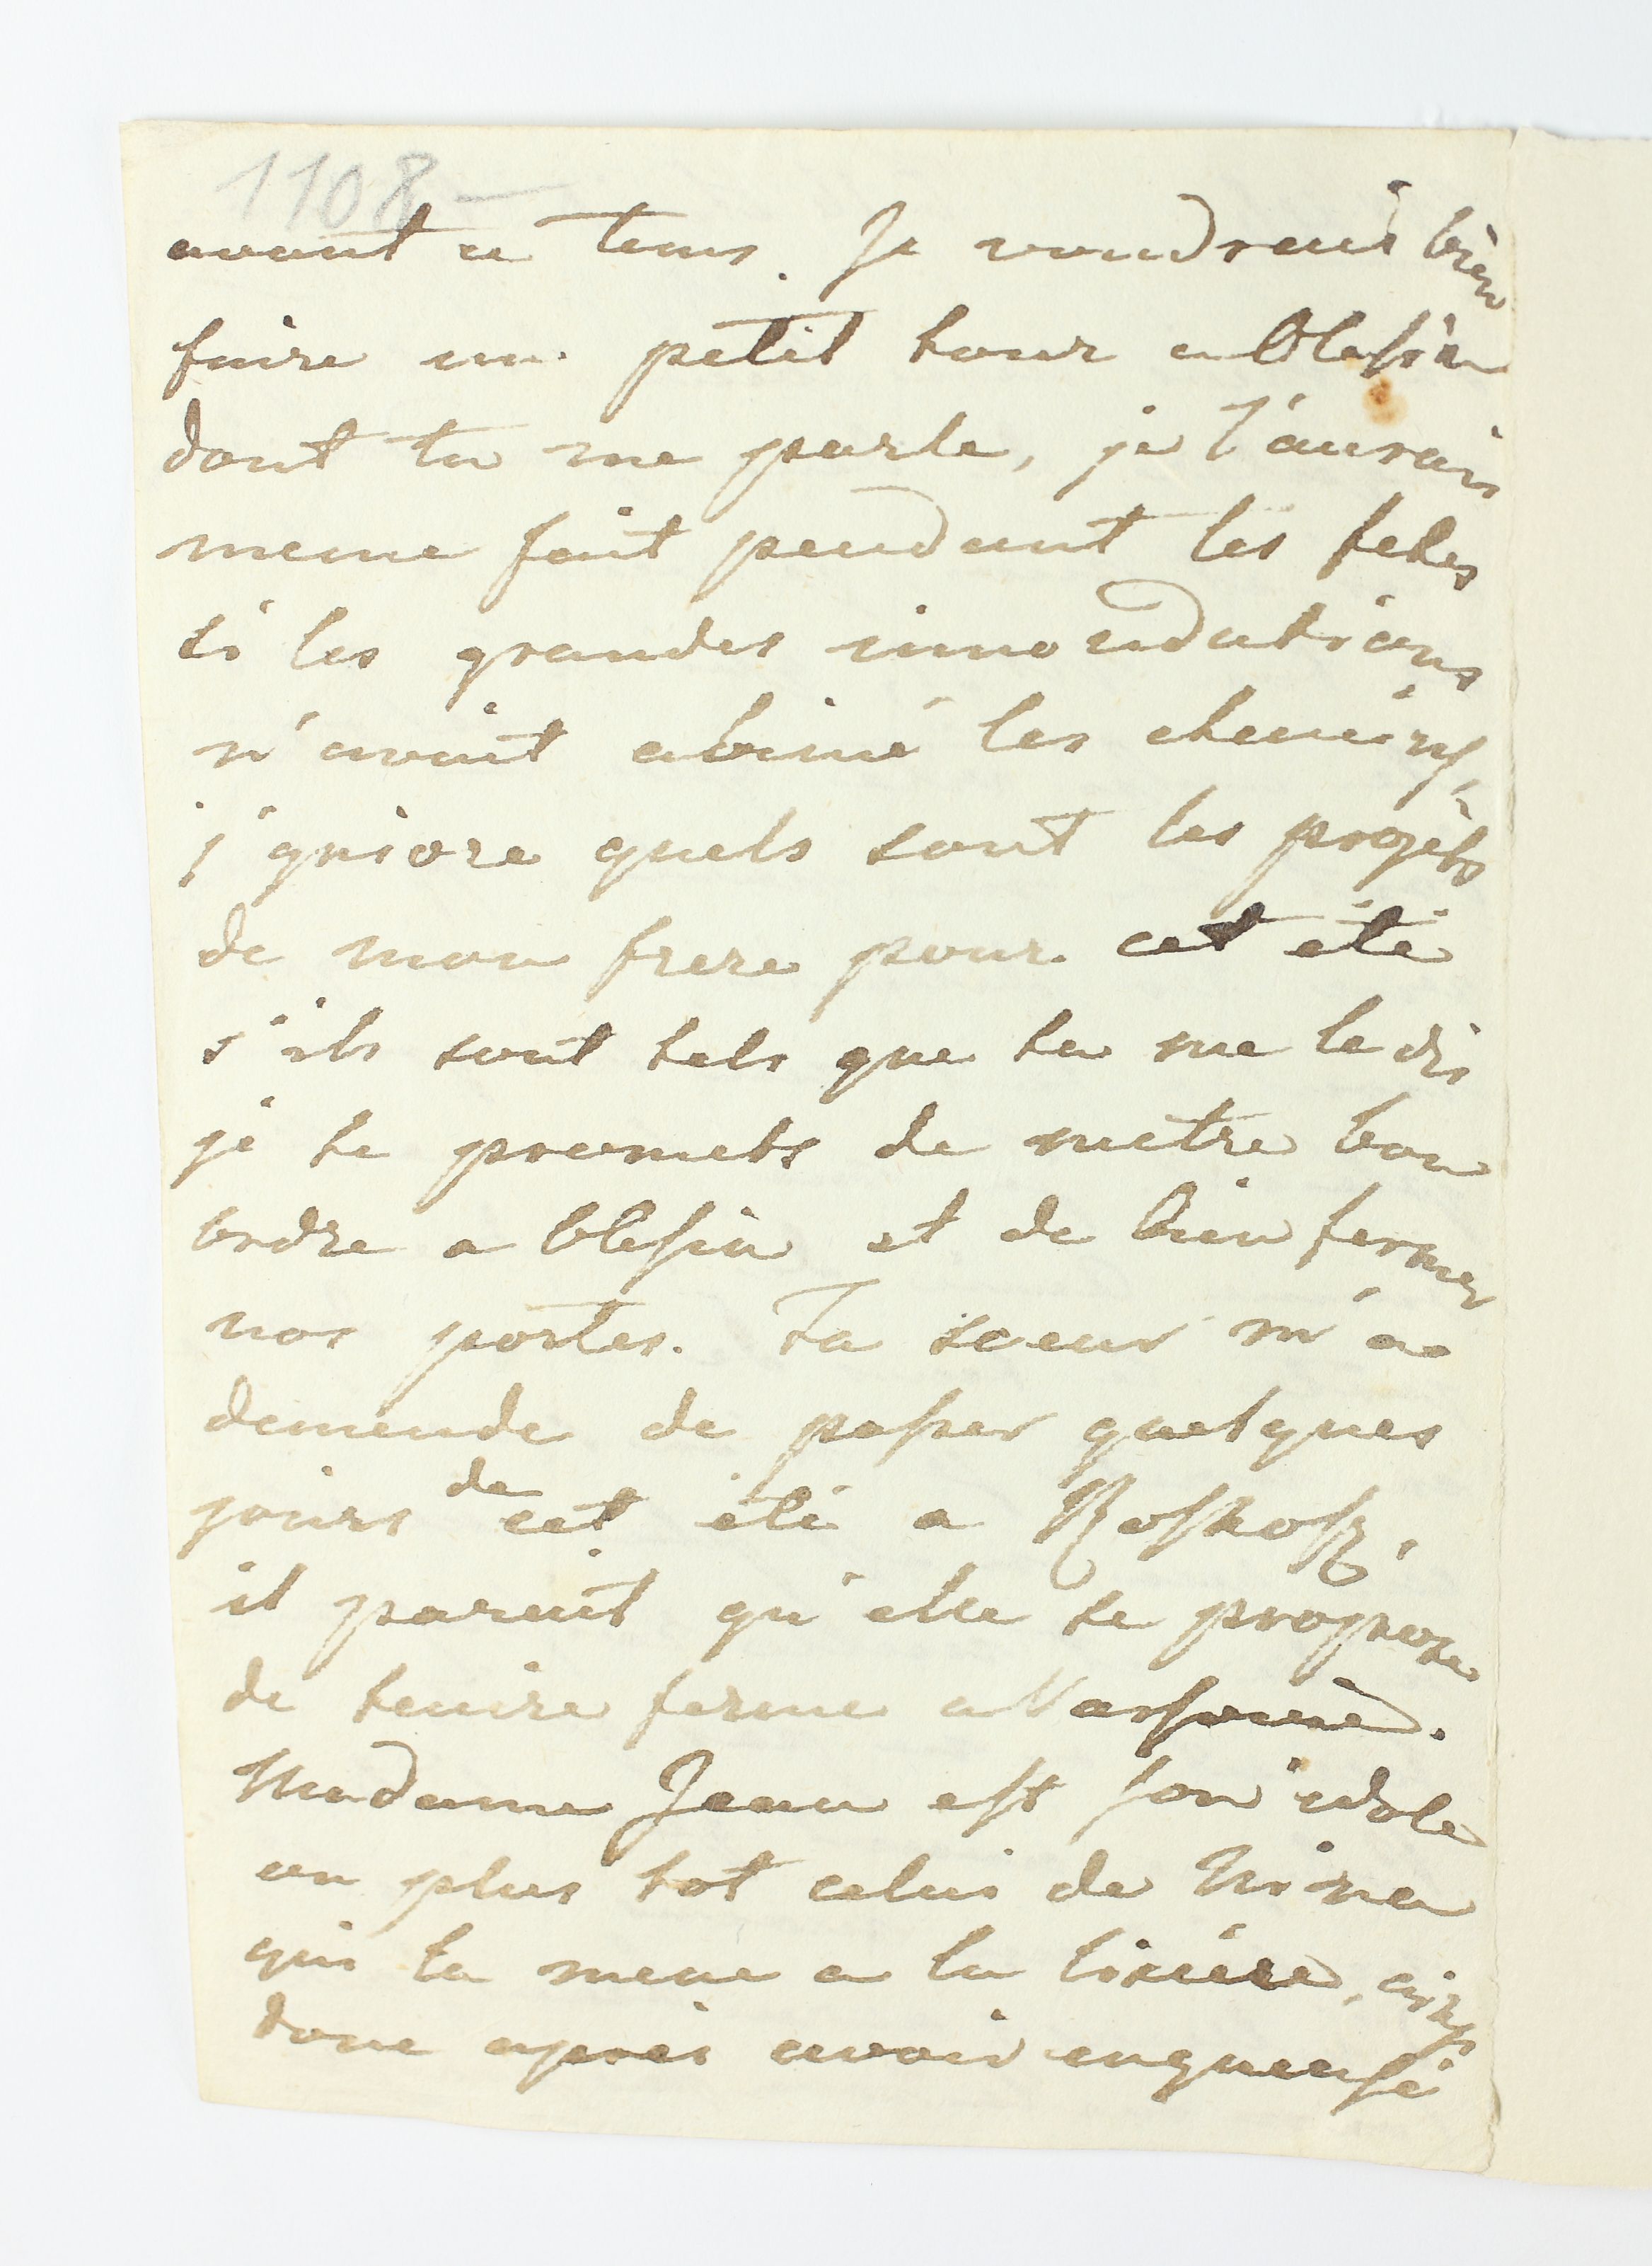 1108 –
avant ce tems. Je voudrais bien
faire un petit tour a Olesin
dont tu me parle, je l'aurais
meme fait pendant les fetes
si les grandes innondations
n'avait abimé les chemins,
j'gniore quels sont les projèts
de mon frere pour cet été
s'ils sont tels que tu me le dis
je te promets de mettre bon
ordre a Olesin et de bien fermer
nos portes. Ta soeur m'a
demende de passer quelques
jours de cet été a Roskosz,
il parait qu'elle se propose
de tenire ferme a Varsovie.
Madame Jean est son idole
ou plus tot celui de Nina
qui la mene a la lisiére, ainsi
donc apres avoir enquensé